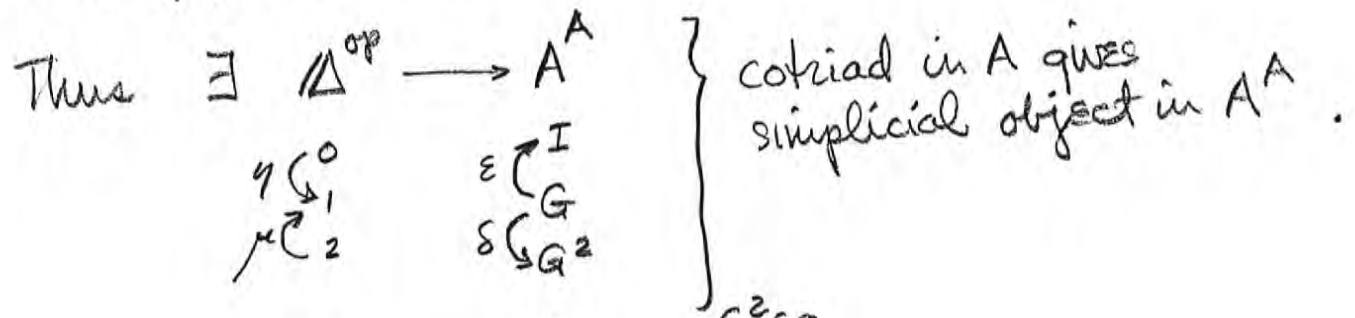 Thus ∃ Δ^op ⟶ A^A } cotriad in A gives
simplicial object in A^A .
η 0 ε I
1 G
μ 2 δ G²